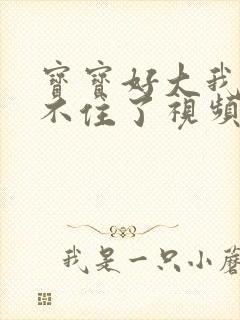 寶寶好大我
不住了視頻
我是一只小蘑